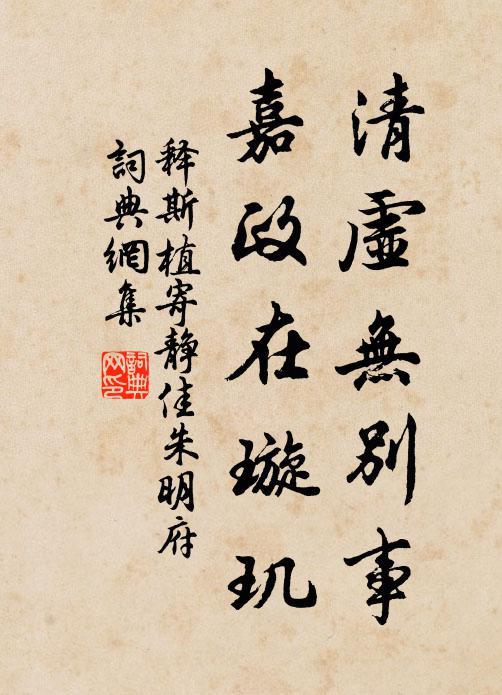 清虛無別事
嘉政在璇玑
释斯植寄静佳朱明府
詞典網集
詞典网印